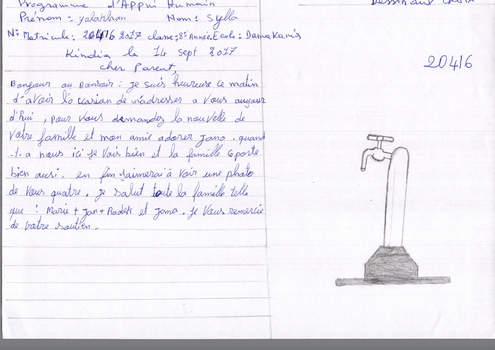 Programme d'Appui Humain
Prénom = yalikhan Nom: Sylla
N: Matricule: 20416 2017 classe: 8e Année. Ecole: Damakania
Kindia le 14 sept 2017
cher Parent,
Bonjour au Bonsoir: je suis heureuse ce matin
d'avoir l'ocasian de m'adresser a Vous aujour
d'hui, pour Vous demandez la nouvelle de
Votre famille et mon amie adorer Jana. quand
-t-a nous ici je Vais bien et la famille se porte
bien aussi. en fin j'aimerai à Voir une photo
de Vous quatre. je salut toute la famille telle
que: Marie + Jan + Radek et Jana. je Vous remercie
de Votre soutien.
20416